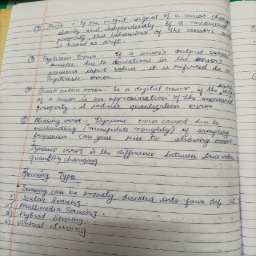 Drift - If an output signal of a sensor changes
slowly and independently of a measured
property, this behaviour of the sensor's
is termed as drift.
Hysteresis Error - If a sensor's output
due to deviations in the sensor's
previous input values it is referred as
Hysteresis error.
Quantization error - In a digital sensor if the
of a is an approximation of the measured
property it induces quantization error.
Aliasing error - Dynamic error caused due to
mishandling of sampling
frequencies can give rise to aliasing error
Dynamic error is the difference between true value
quantity changing
Sensing Type
Sensing can be broadly divided into four
1) Scalar Sensing
2) Multimedia Sensing
3) Hybrid Sensing
4) Virtual Sensing